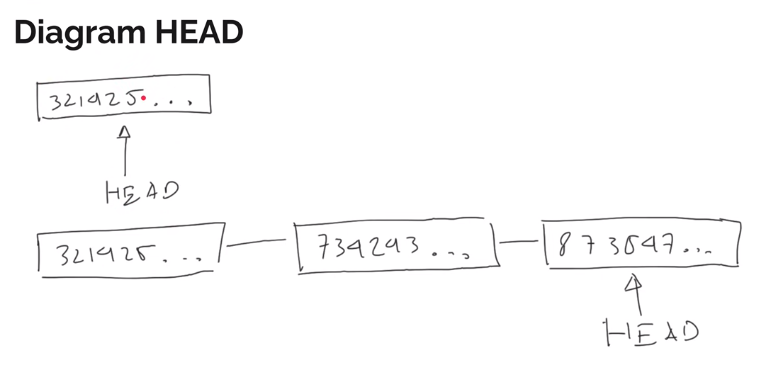 Diagram HEAD
321425...
HEAD
321425... 734293... 873547...
HEAD